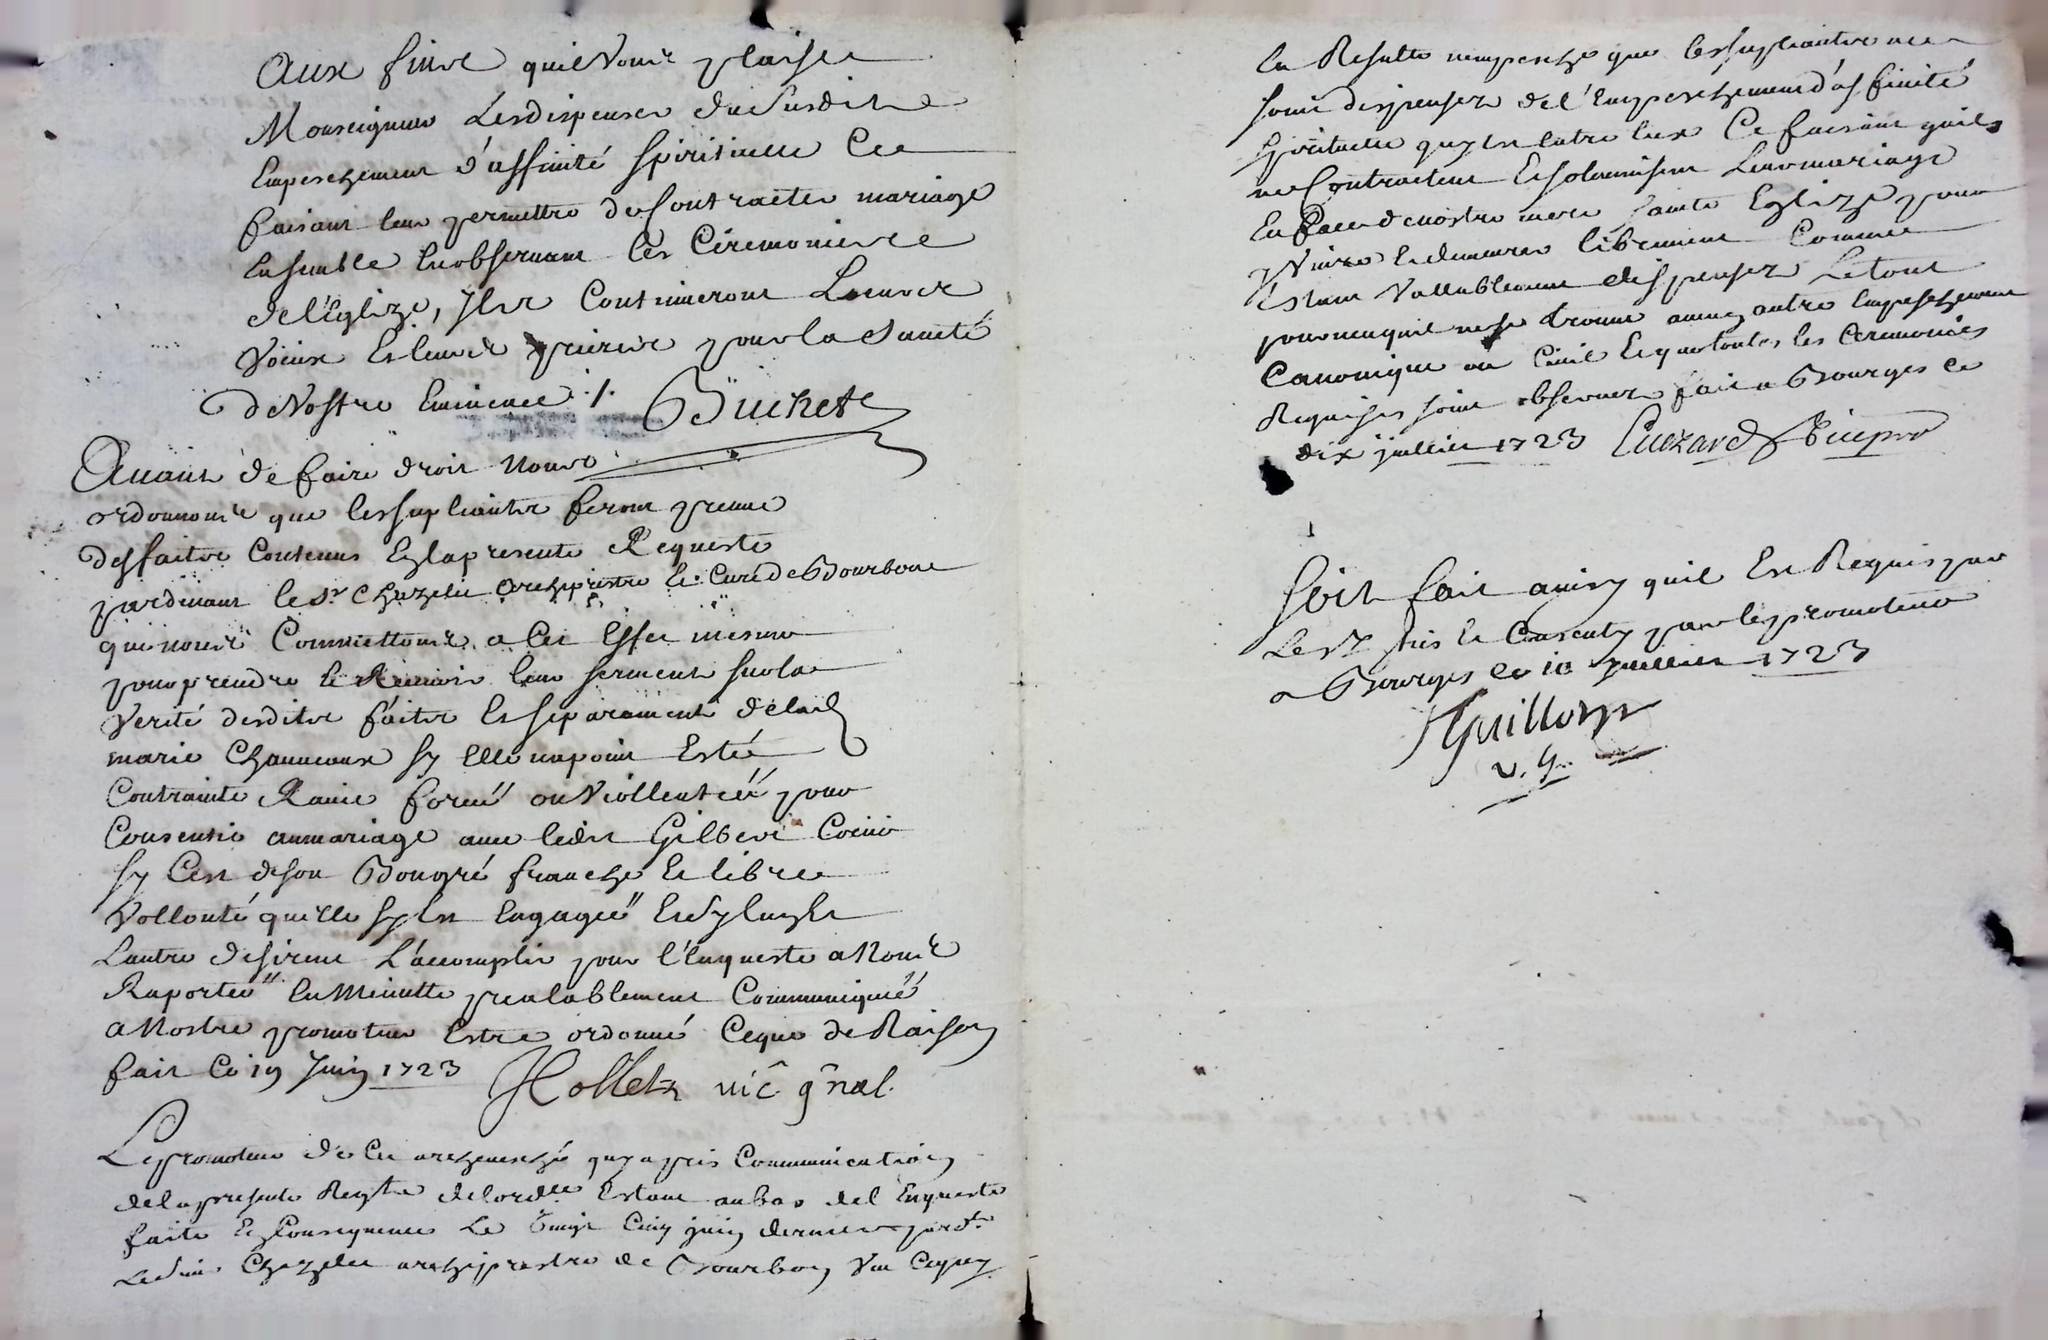 Aux fins quil Vous plaise
Monseigneur Les dispenser du Susdit
Empeschement d'affinité Spirituelle Ce
faisant leur permettre de Contracter mariage
Ensemble En observant les Ceremonies
de l'Eglize, Ils Continueront Leurs
Voeux Et leurs prieres pour la Santé
de Vostre Eminence ./. Buchet
Avant de faire droit Nous
ordonnons que les supliants feront preuve
des faits Contenus En la presente Requeste
pardevant le Sr Chazelle Archiprestre Et Curé de Bourbon
que nous Commettons a Cet Effet mesme
pour prendre Et Recevoir leur serment sur la
Verité desdits faits Et separement de lad
marie Chauveaux sy Elle na point Esté
Contrainte Ravie forcée ou Viollentée pour
Consentir au mariage avec ledit Gilbert
sy Cest de son Bon gré franche Et libre
Vollonté quelle sy Est Engagée Et sy lun Et
Lautre desirent L'accomplir pour l'Enqueste a Nous
Raportée En Minutte prealablement Communiquée
a Nostre promoteur Estre ordonné Ceque de Raison
fait Ce 19 Juin 1723 Hollet vic gnal.
Le promoteur de Cet archevesché qui a pris Communication
de la presente Reqte de lordce Estant au bas de l'Enqueste
faite En Consequence Le Vingt Cinq juin dernier par dt
Ledsieur Chazelle archiprestre de Bourbon Vu Ce quy
En Resulte nempesche que les supliants ne
soint dispensez de l'Empeschement d'affinité
spirituelle quy Est Entre Eux Ce faisant quils
ne Contractent Et solemnisent Leur mariage
En face de nostre mere sainte Eglize pour
y Vivre Et demeurer librement Comme
Estant Vallablement dispensez Le tout
pourveu quil ne se trouve aucun autre Empeschement
Canonique ou Civil Et que toutes les Ceremonies
Requises soint observez fait a Bourges Ce
dix juillet 1723
Soit fait ainsy quil Est Requis par
Les Et Consenty par le promoteur
a Bourges le 10 Juillet 1723
Guillon
v. g.